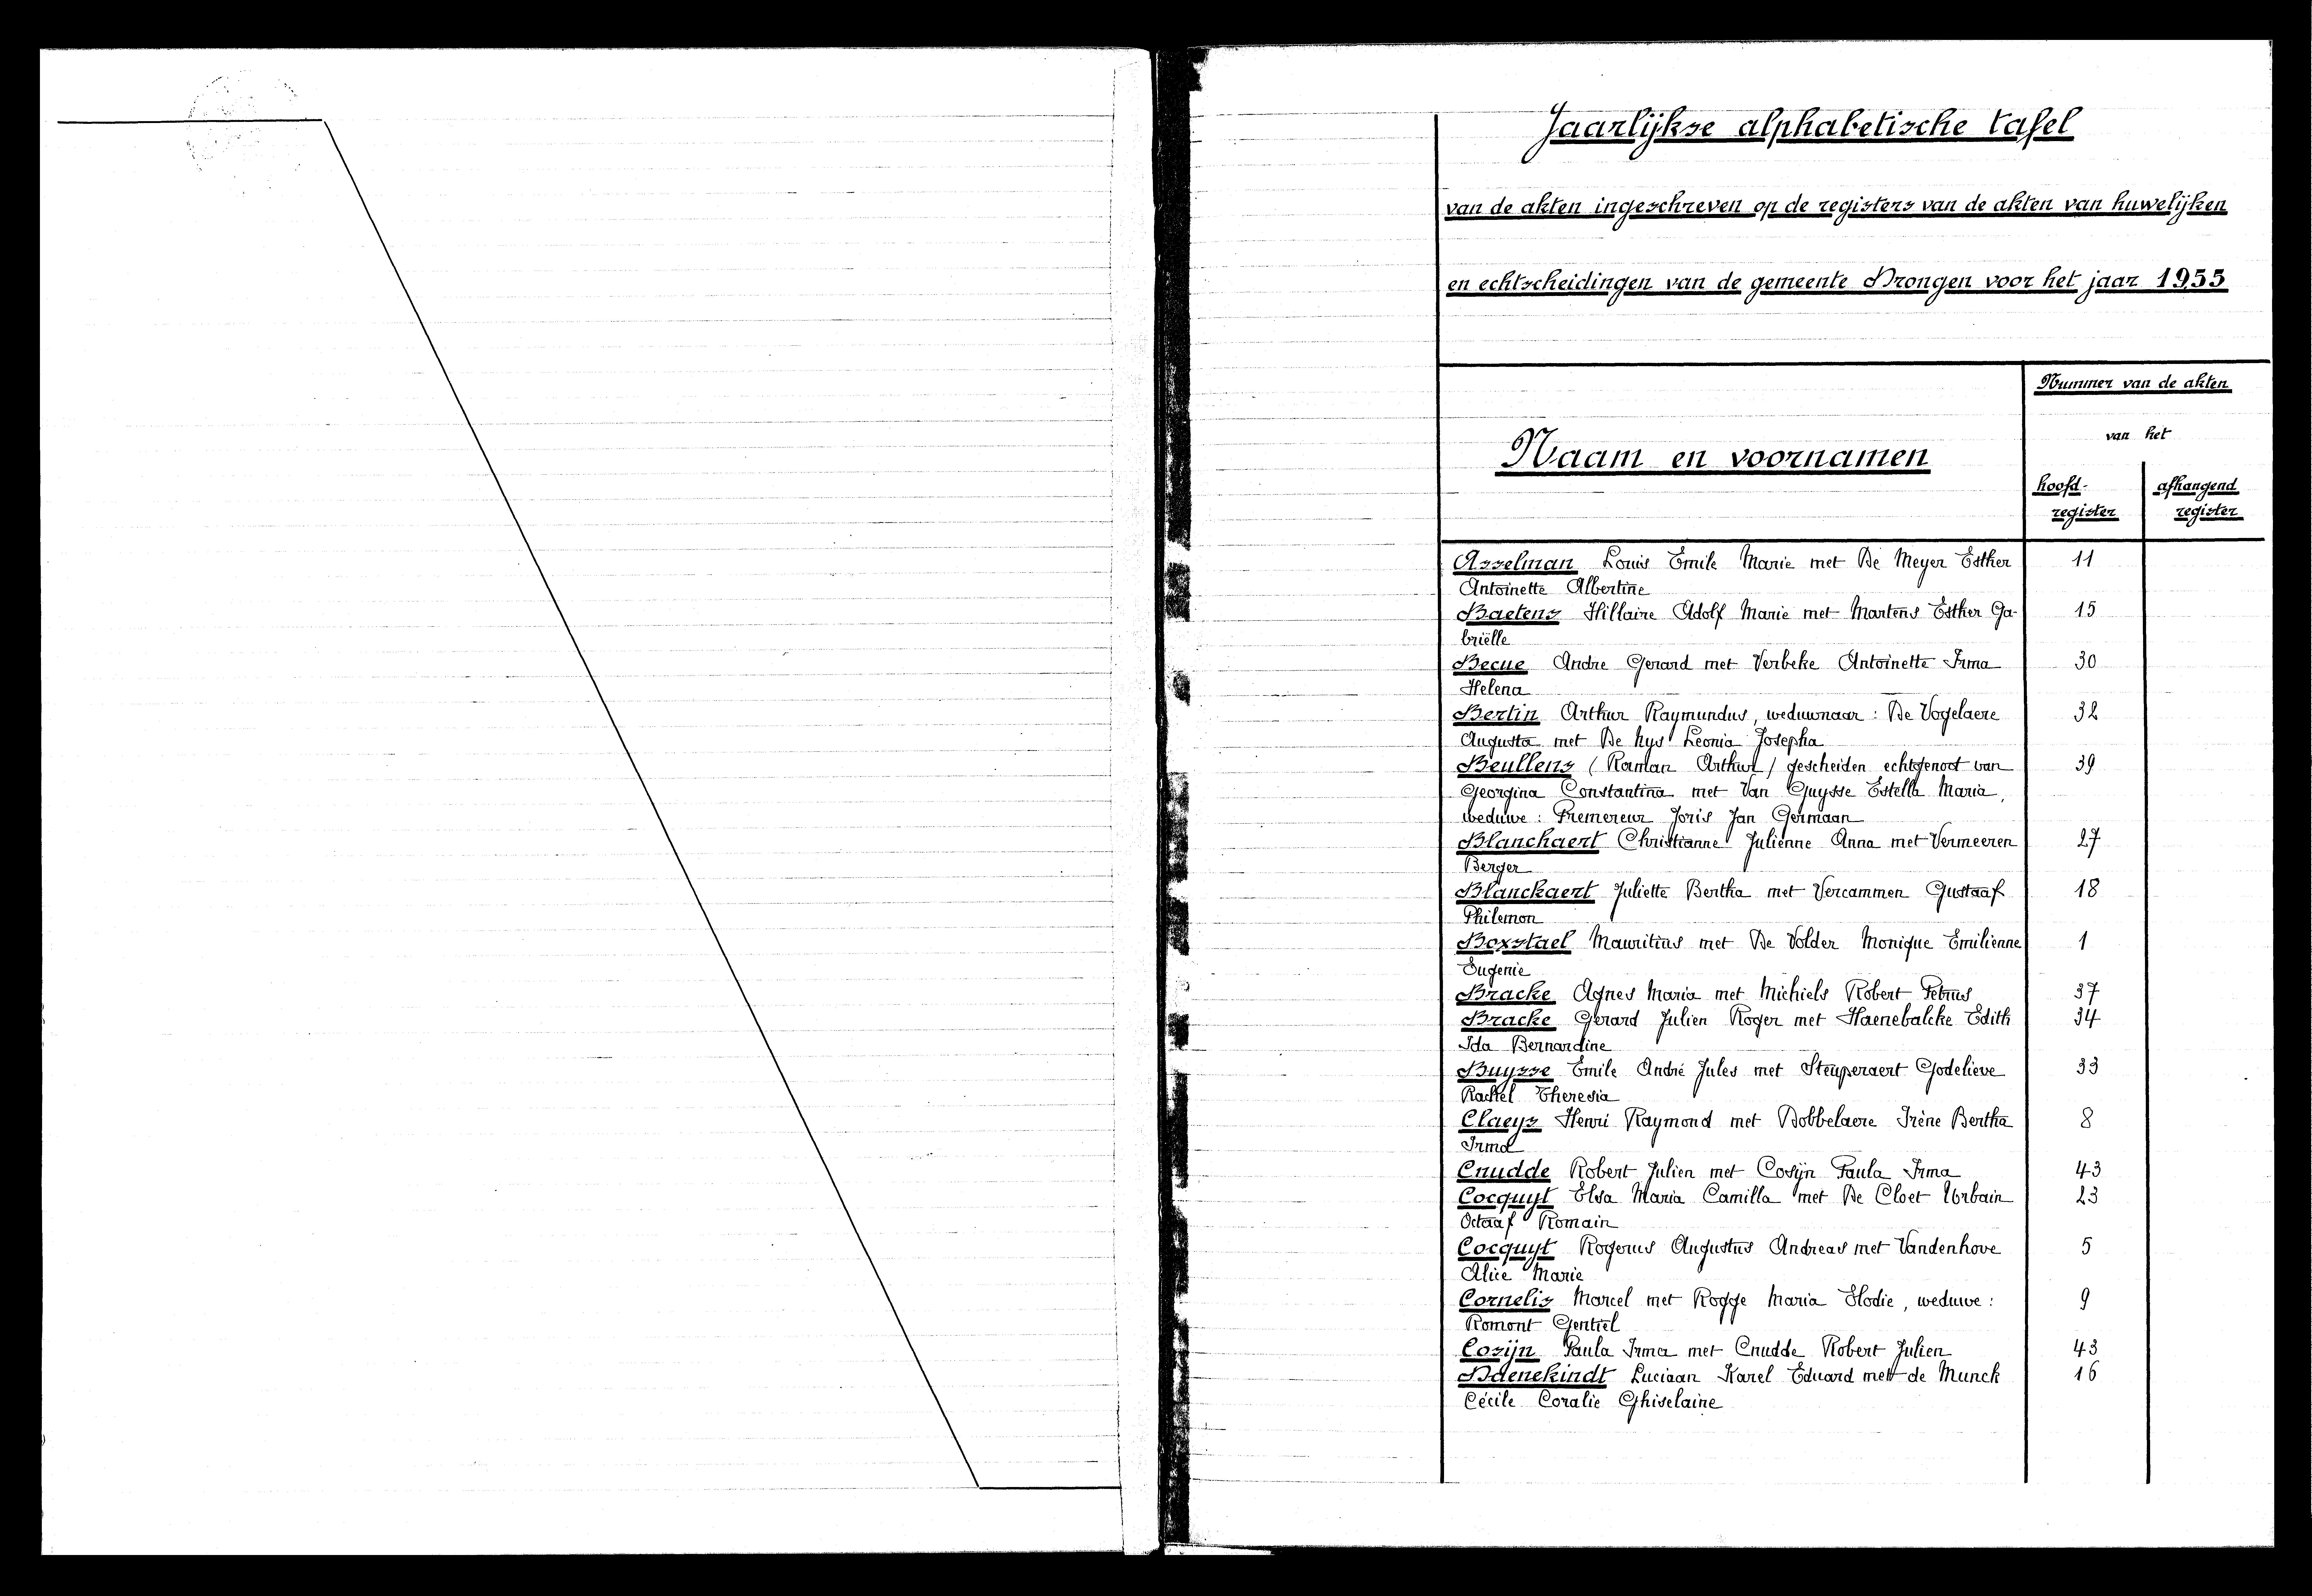 Jaarlijkse alphabetische tafel
van de akten ingeschreven op de registers van de akten van huwelijken
en echtscheidingen van de gemeente Drongen voor het jaar 1955
Nummer van de akten
van het
Naam en voornamen
hoofd- register
afhangend register
Asselman Louis Emile Marie met De Meyer Esther 11
Antoinette Albertine
Baetens Hillaire Adolf Marie met Martens Esther Ga- 15
briëlle
Becue Andre Gerard met Verbeke Antoinette Irma 30
Helena
Bertin Arthur Raymundus, weduwnaar : De Vogelaere 32
Augusta met De Nys Leonia Josepha
Beullens (Roman Arthur) gescheiden echtgenoot van 39
Georgina Constantina met Van Guysse Estella Maria,
weduwe : Premereur Joris Jan Germaan
Blanchaert Christianne Julienne Anna met Vermeeren 27
Berger
Blanckaert Juliette Bertha met Vercammen Gustaaf 18
Philemon
Boxstael Mauritius met De Volder Monique Emilienne 1
Eugenie
Bracke Agnes Maria met Michiels Robert Petrus 37
Bracke Gerard Julien Roger met Haenebalcke Edith 34
Ida Bernardine
Buysse Emile André Jules met Steuperaert Godelieve 33
Rachel Theresia
Claeys Henri Raymond met Dobbelaere Irène Bertha 8
Irma
Cnudde Robert Julien met Cosijn Paula Irma 43
Cocquyt Elsa Maria Camilla met De Cloet Urbain 23
Octaaf Romain
Cocquyt Rogerus Augustus Andreas met Vandenhove 5
Alice Marie
Cornelis Marcel met Rogge Maria Elodie, weduwe : 9
Romont Gentiel
Cosijn Paula Irma met Cnudde Robert Julien 43
Daenekindt Luciaan Karel Eduard met de Munck 16
Cécile Coralie Ghiselaine